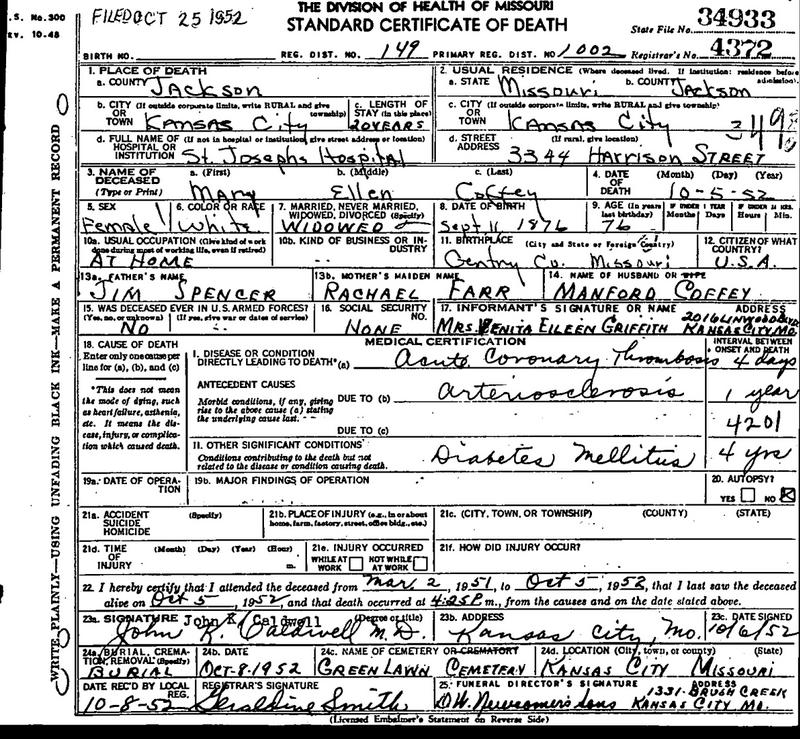 S. No. 300
RV. 10-48
FILED OCT 25 1952
THE DIVISION OF HEALTH OF MISSOURI
STANDARD CERTIFICATE OF DEATH
State File No. 34933
BIRTH NO. REG. DIST. NO. 149 PRIMARY REG. DIST. NO. 1002 Registrar's No. 4372
WRITE PLAINLY—USING UNFADING BLACK INK—MAKE A PERMANENT RECORD
1. PLACE OF DEATH
a. COUNTY Jackson
2. USUAL RESIDENCE (Where deceased lived. If institution: residence before admission).
a. STATE Missouri b. COUNTY Jackson
b. CITY (If outside corporate limits, write RURAL and give township) OR TOWN Kansas City
c. LENGTH OF STAY (in this place) 20 YEARS
c. CITY (If outside corporate limits, write RURAL and give township) OR TOWN Kansas City
d. FULL NAME OF (If not in hospital or institution, give street address or location) HOSPITAL OR INSTITUTION St. Josephs Hospital
d. STREET ADDRESS (If rural, give location) 3344 Harrison Street
3. NAME OF DECEASED (Type or Print)
a. (First) Mary b. (Middle) Ellen c. (Last) Coffey
4. DATE OF DEATH (Month) (Day) (Year) 10-5-52
5. SEX Female
6. COLOR OR RACE White
7. MARRIED, NEVER MARRIED, WIDOWED, DIVORCED (Specify) WIDOWED
8. DATE OF BIRTH Sept 11 1876
9. AGE (In years last birthday) 76 IF UNDER 1 YEAR Months Days IF UNDER 24 HRS. Hours Min.
10a. USUAL OCCUPATION (Give kind of work done during most of working life, even if retired) AT HOME
10b. KIND OF BUSINESS OR INDUSTRY
11. BIRTHPLACE (City and State or Foreign Country) Gentry Co. Missouri
12. CITIZEN OF WHAT COUNTRY? U.S.A.
13a. FATHER'S NAME JIM SPENCER
13b. MOTHER'S MAIDEN NAME RACHAEL FARR
14. NAME OF HUSBAND OR WIFE MANFORD COFFEY
15. WAS DECEASED EVER IN U.S. ARMED FORCES? (Yes, no, or unknown) (If yes, give war or dates of service) No
16. SOCIAL SECURITY NO. NONE
17. INFORMANT'S SIGNATURE OR NAME ADDRESS
MRS. EILEEN GRIFFITH KANSAS CITY, MO.
18. CAUSE OF DEATH
Enter only one cause per line for (a), (b), and (c)
*This does not mean the mode of dying, such as heart failure, asthenia, etc. It means the disease, injury, or complication which caused death.
MEDICAL CERTIFICATION
INTERVAL BETWEEN ONSET AND DEATH
I. DISEASE OR CONDITION DIRECTLY LEADING TO DEATH* (a) Acute Coronary Thrombosis 4 days
ANTECEDENT CAUSES
Morbid conditions, if any, giving rise to the above cause (a) stating the underlying cause last.
DUE TO (b) Arteriosclerosis 1 year
DUE TO (c) 4201
II. OTHER SIGNIFICANT CONDITIONS
Conditions contributing to the death but not related to the disease or condition causing death.
Diabetes Mellitus 4 yrs
19a. DATE OF OPERATION
19b. MAJOR FINDINGS OF OPERATION
20. AUTOPSY? YES NO X
21a. ACCIDENT SUICIDE HOMICIDE (Specify)
21b. PLACE OF INJURY (e.g., in or about home, farm, factory, street, office bldg., etc.)
21c. (CITY, TOWN, OR TOWNSHIP) (COUNTY) (STATE)
21d. TIME OF INJURY (Month) (Day) (Year) (Hour) m.
21e. INJURY OCCURRED WHILE AT WORK NOT WHILE AT WORK
21f. HOW DID INJURY OCCUR?
22. I hereby certify that I attended the deceased from Mar. 2, 1951, to Oct 5, 1952, that I last saw the deceased
alive on Oct 5, 1952, and that death occurred at 4:25 P m., from the causes and on the date stated above.
23a. SIGNATURE John K. Caldwell (Degree or title)
John K. Caldwell M.D.
23b. ADDRESS Kansas City, Mo.
23c. DATE SIGNED 10/6/52
24a. BURIAL, CREMATION, REMOVAL (Specify) BURIAL
24b. DATE Oct-8-1952
24c. NAME OF CEMETERY OR CREMATORY GREEN LAWN CEMETERY
24d. LOCATION (City, town, or county) (State) KANSAS CITY MISSOURI
DATE REC'D BY LOCAL REG. 10-8-52
REGISTRAR'S SIGNATURE Geraldine Smith
25. FUNERAL DIRECTOR'S SIGNATURE ADDRESS
D.W. Newcomer's Sons 1331 BRUSH CREEK KANSAS CITY MO.
(Licensed Embalmer's Statement on Reverse Side)